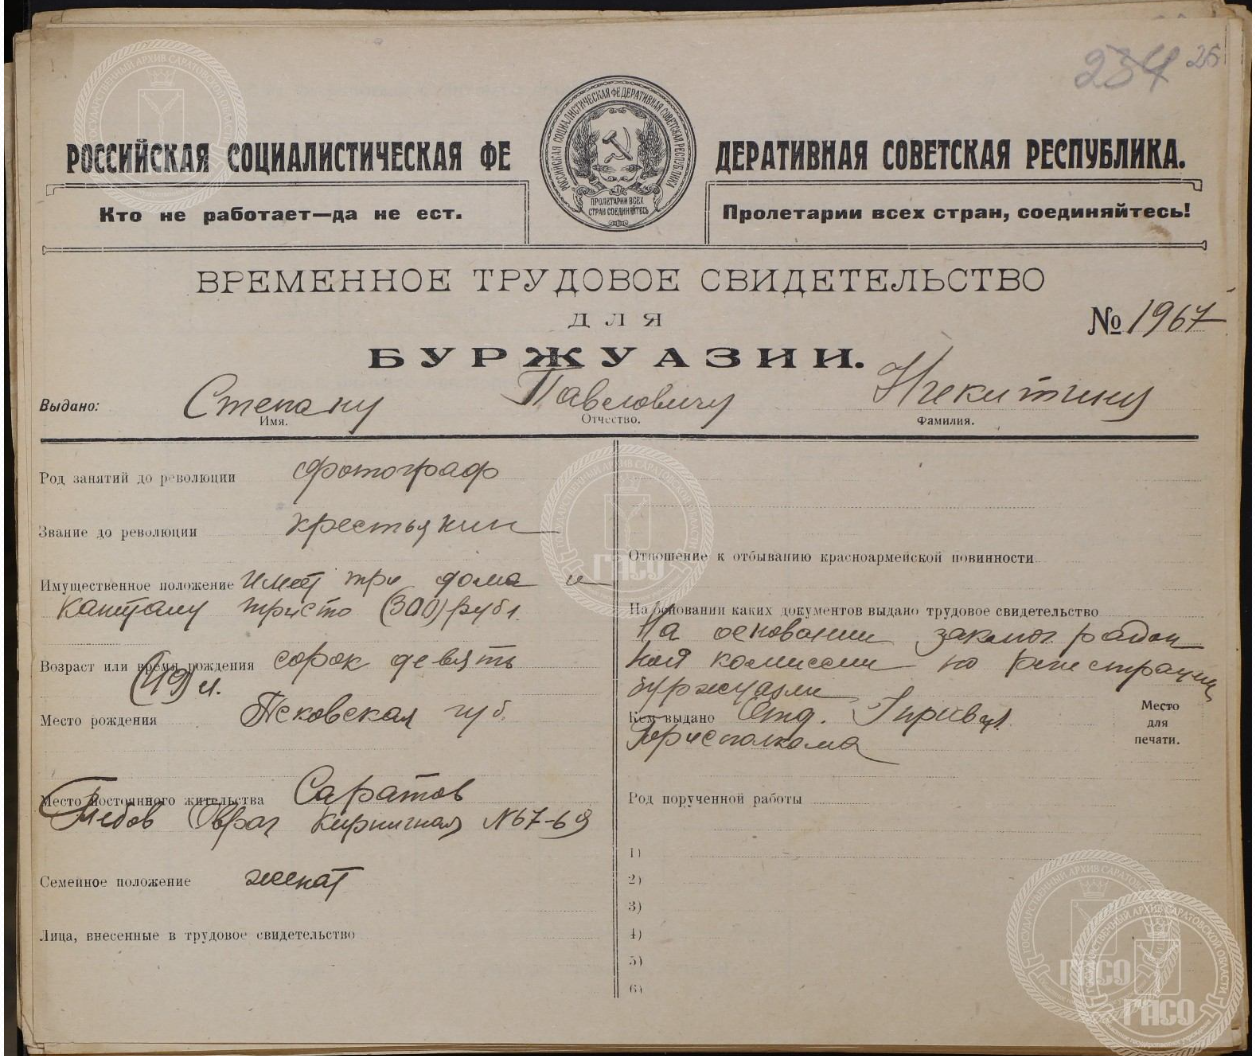 234 26
РОССИЙСКАЯ СОЦИАЛИСТИЧЕСКАЯ ФЕДЕРАТИВНАЯ СОВЕТСКАЯ РЕСПУБЛИКА.
РОССИЙСКАЯ СОЦИАЛИСТИЧЕСКАЯ ФЕДЕРАТИВНАЯ СОВЕТСКАЯ РЕСПУБЛИКА
ПРОЛЕТАРИИ ВСЕХ
СТРАН СОЕДИНЯЙТЕСЬ
Кто не работает—да не ест.
Пролетарии всех стран, соединяйтесь!
ВРЕМЕННОЕ ТРУДОВОЕ СВИДЕТЕЛЬСТВО
ДЛЯ
№ 1967
БУРЖУАЗИИ.
Выдано: Степану Павловичу Никитину
Имя. Отчество. Фамилия.
Род занятий до революции фотограф
Звание до революции крестьянин
Имущественное положение имеет три дома и
капиталу триста (300) рубл.
Возраст или время рождения сорок девять
(49) л.
Место рождения Псковская губ.
Место постоянного жительства Саратов
Глебов Овраг Кирпичная №67-69
Семейное положение женат
Лица, внесенные в трудовое свидетельство
Отношение к отбыванию красноармейской повинности
На основании каких документов выдано трудовое свидетельство
На основании район
ной комиссии по регистрации
буржуазии
Кем выдано Отд. Управл
Горисполкома
Место
для
печати.
Род порученной работы
1)
2)
3)
4)
5)
6)
ГАСО
ГАСО
ГАСО